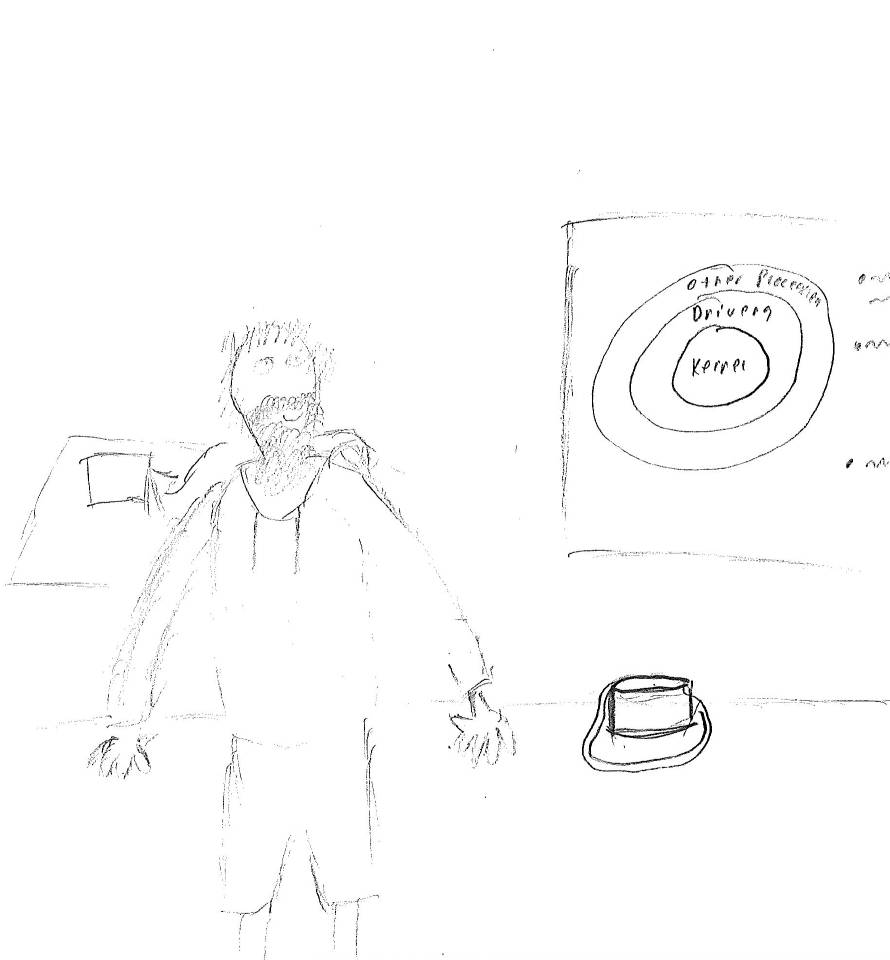 Other Processes
Drivers
Kernel